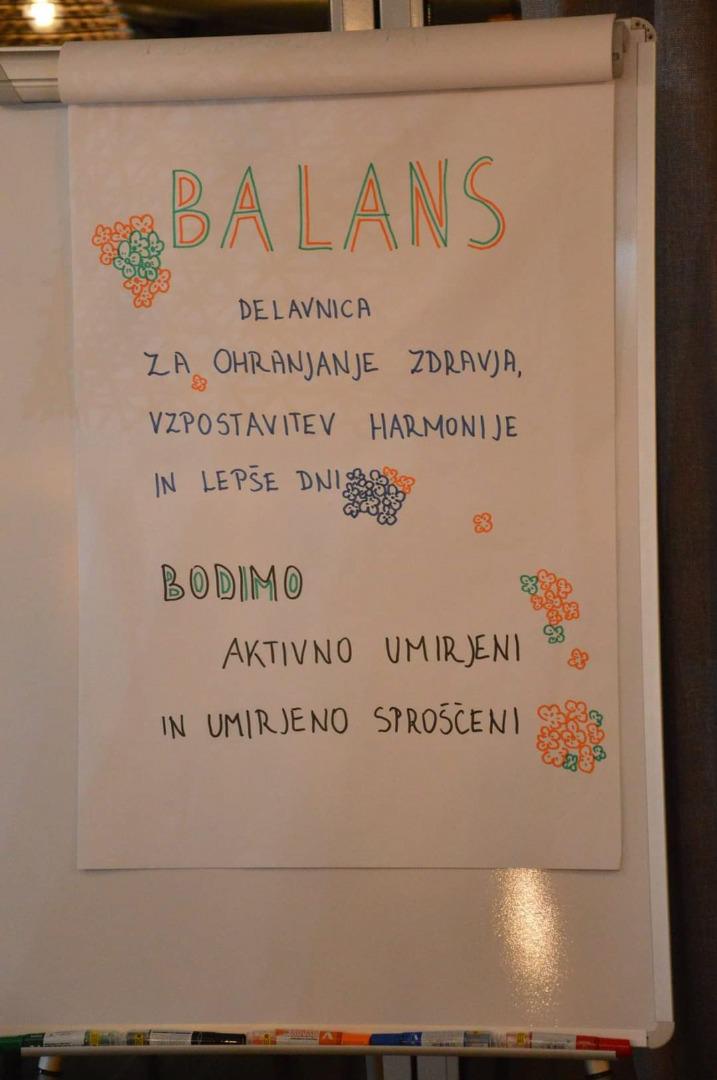 BALANS
DELAVNICA
ZA OHRANJANJE ZDRAVJA,
VZPOSTAVITEV HARMONIJE
IN LEPŠE DNI
BODIMO
AKTIVNO UMIRJENI
IN UMIRJENO SPROŠČENI